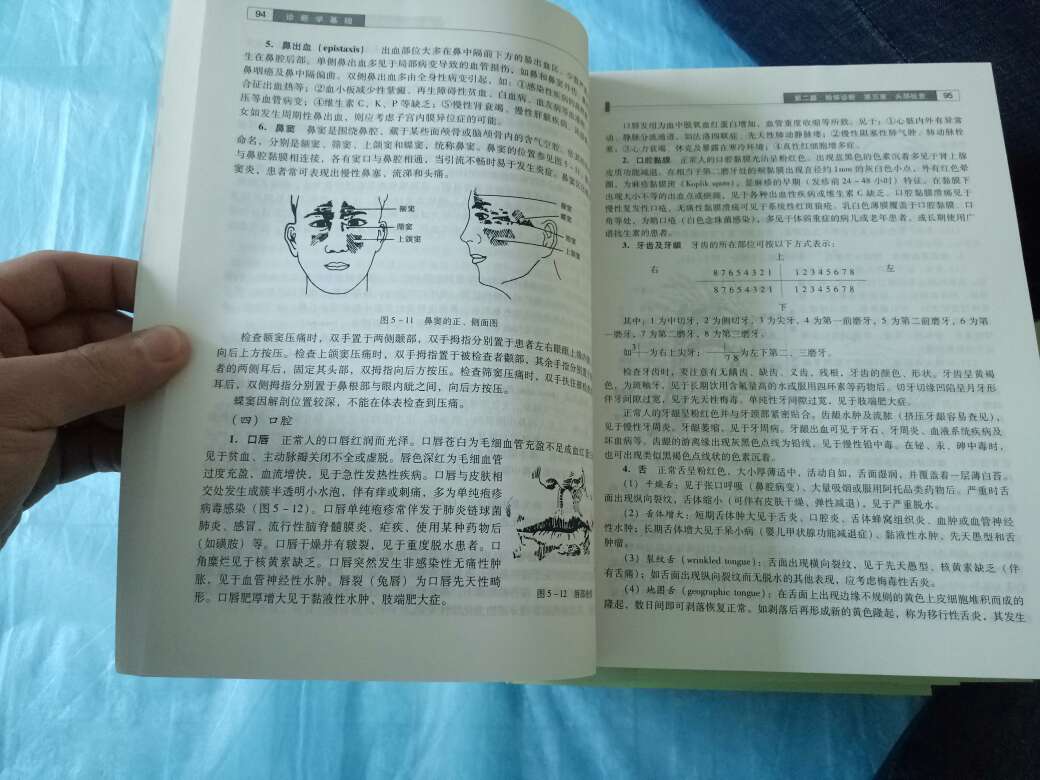 94 诊断学基础
5. 鼻出血（epistaxis） 出血部位大多在鼻中隔前下方的易出血区，少数
生在鼻腔后部。单侧鼻出血多见于局部病变导致的血管损伤，如鼻和鼻窦外伤
鼻咽癌及鼻中隔偏曲。双侧鼻出血多由全身性病变引起，如：①感染性疾病
合征出血热等；②血小板减少性紫癜、再生障碍性贫血、白血病、血友病等血液病
压等血管病变；④维生素C、K、P等缺乏；⑤慢性肾衰竭、慢性肝脏疾病
女如发生周期性鼻出血，则应考虑子宫内膜异位症的可能。
6. 鼻窦 鼻窦是围绕鼻腔、藏于某些面颅骨或脑颅骨内的含气空腔，依其
命名，分别是额窦、筛窦、上颌窦和蝶窦，统称鼻窦。鼻窦的位置参见图5-11
与鼻腔黏膜相连接，各有窦口与鼻腔相通，当引流不畅时易于发生炎症。鼻窦
窦炎，患者常可表现出慢性鼻塞、流涕和头痛。
额窦
筛窦
上颌窦
额窦
蝶窦
筛窦
上颌窦
图5-11 鼻窦的正、侧面图
检查额窦压痛时，双手置于两侧颞部，双手拇指分别置于患者左右眼眶上缘内侧
向后上方按压。检查上颌窦压痛时，双手拇指置于被检查者颧部，其余手指分别置于
者的两侧耳后，固定其头部，双拇指向后方按压。检查筛窦压痛时，双手扶住
耳后，双侧拇指分别置于鼻根部与眼内眦之间，向后方按压。
蝶窦因解剖位置较深，不能在体表检查到压痛。
（四）口腔
1. 口唇 正常人的口唇红润而光泽。口唇苍白为毛细血管充盈不足或血红蛋白
见于贫血、主动脉瓣关闭不全或虚脱。唇色深红为毛细血管
过度充盈、血流增快，见于急性发热性疾病。口唇与皮肤相
交处发生成簇半透明小水泡，伴有痒或刺痛，多为单纯疱疹
病毒感染（图5-12）。口唇单纯疱疹常伴发于肺炎链球菌
肺炎、感冒、流行性脑脊髓膜炎、疟疾、使用某种药物后
（如磺胺）等。口唇干燥并有皲裂，见于重度脱水患者。口
角糜烂见于核黄素缺乏。口唇突然发生非感染性无痛性肿
胀，见于血管神经性水肿。唇裂（兔唇）为口唇先天性畸
形。口唇肥厚增大见于黏液性水肿、肢端肥大症。
图5-12 唇部疱疹
第二篇 检体诊断 第五章 头部检查 95
口唇发绀为血中脱氧血红蛋白增加、血管重度收缩等所致。见于：①心脏内外有异常
动、静脉分流通道，如法洛四联症、先天性肺动静脉瘘；②慢性阻塞性肺气肿、肺动脉栓
塞；③心力衰竭、休克及暴露在寒冷环境；④真性红细胞增多症。
2. 口腔黏膜 正常人的口腔黏膜光洁呈粉红色。出现蓝黑色的色素沉着多见于肾上腺
皮质功能减退。在相当于第二磨牙处的颊黏膜出现直径约1mm的灰白色小点，外有红色晕
圈，为麻疹黏膜斑（Koplik spots），是麻疹的早期（发疹前24～48小时）特征。在黏膜下
出现大小不等的出血点或瘀斑，见于各种出血性疾病或维生素C缺乏。口腔黏膜溃疡见于
慢性复发性口疮，无痛性黏膜溃疡可见于系统性红斑狼疮。乳白色薄膜覆盖于口腔黏膜、口
角等处，为鹅口疮（白色念珠菌感染），多见于体弱重症的病儿或老年患者，或长期使用广
谱抗生素的患者。
3. 牙齿及牙龈 牙齿的所在部位可按以下方式表示：
上
右 8 7 6 5 4 3 2 1 1 2 3 4 5 6 7 8 左
8 7 6 5 4 3 2 1 1 2 3 4 5 6 7 8
下
其中：1为中切牙，2为侧切牙，3为尖牙，4为第一前磨牙，5为第二前磨牙，6为第
一磨牙，7为第二磨牙，8为第三磨牙。
如3为右上尖牙；7 8为左下第二、三磨牙。
检查牙齿时，要注意有无龋齿、缺齿、义齿、残根，牙齿的颜色、形状。牙齿呈黄褐
色，为斑釉牙，见于长期饮用含氟量高的水或服用四环素等药物后。切牙切缘凹陷呈月牙形
伴牙间隙过宽，见于先天性梅毒。单纯性牙间隙过宽，见于肢端肥大症。
正常人的牙龈呈粉红色并与牙颈部紧密贴合。齿龈水肿及流脓（挤压牙龈容易查见），
见于慢性牙周炎。牙龈萎缩，见于牙周病。牙龈出血可见于牙石、牙周炎、血液系统疾病及
坏血病等。齿龈的游离缘出现灰黑色点线为铅线，见于慢性铅中毒。在铋、汞、砷中毒时，
也可出现类似黑褐色点线状的色素沉着。
4. 舌 正常舌呈粉红色，大小厚薄适中，活动自如，舌面湿润，并覆盖着一层薄白苔。
（1）干燥舌：见于张口呼吸（鼻腔病变）、大量吸烟或服用阿托品类药物后。严重时舌
面出现纵向裂纹，舌体缩小（可伴有皮肤干燥、弹性减退），见于严重脱水。
（2）舌体增大：短期舌体肿大见于舌炎、口腔炎、舌体蜂窝组织炎、血肿或血管神经
性水肿；长期舌体增大见于呆小病（婴儿甲状腺功能减退症）、黏液性水肿、先天愚型和舌
肿瘤。
（3）裂纹舌（wrinkled tongue）：舌面出现横向裂纹，见于先天愚型、核黄素缺乏（伴
有舌痛）；如舌面出现纵向裂纹而无脱水的其他表现，应考虑梅毒性舌炎。
（4）地图舌（geographic tongue）：在舌面上出现边缘不规则的黄色上皮细胞堆积而成的
隆起，数日间即可剥落恢复正常。如剥落后再形成新的黄色隆起，称为移行性舌炎，其发生